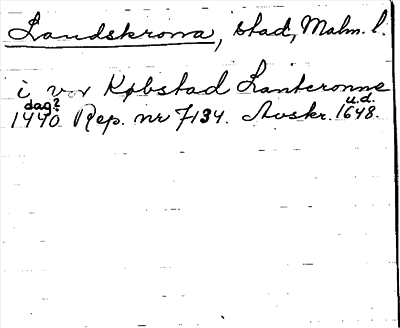 Landskrona, stad, Malm. l.
i vor Købstad Lanteronne
dag? u.d.
1440 Rep. nr 7134. Avskr. 1648.